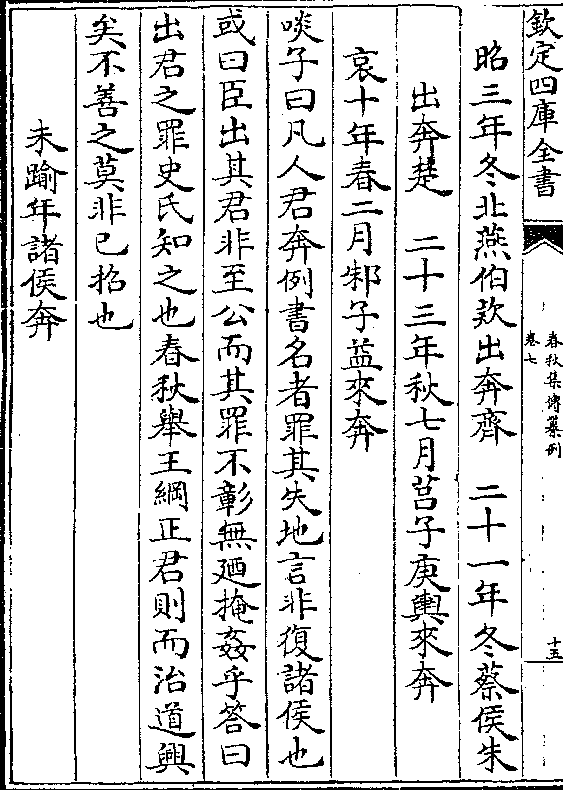 欽定四庫全書
春秋集傳纂例
卷七
十五
昭三年冬北燕伯款出奔齊　二十一年冬蔡侯朱
出奔楚　二十三年秋七月莒子庚輿來奔
哀十年春二月邾子益來奔
啖子曰凡人君奔例書名者罪其失地言非復諸侯也
或曰臣出其君非至公而其罪不彰無廼掩姦乎答曰
出君之罪史氏知之也春秋舉王綱正君則而治道興
矣不善之莫非已招也
未踰年諸侯奔